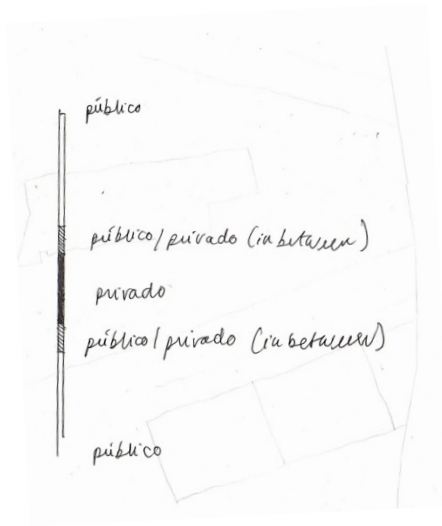 público
público/privado (in between)
privado
público/privado (in between)
público